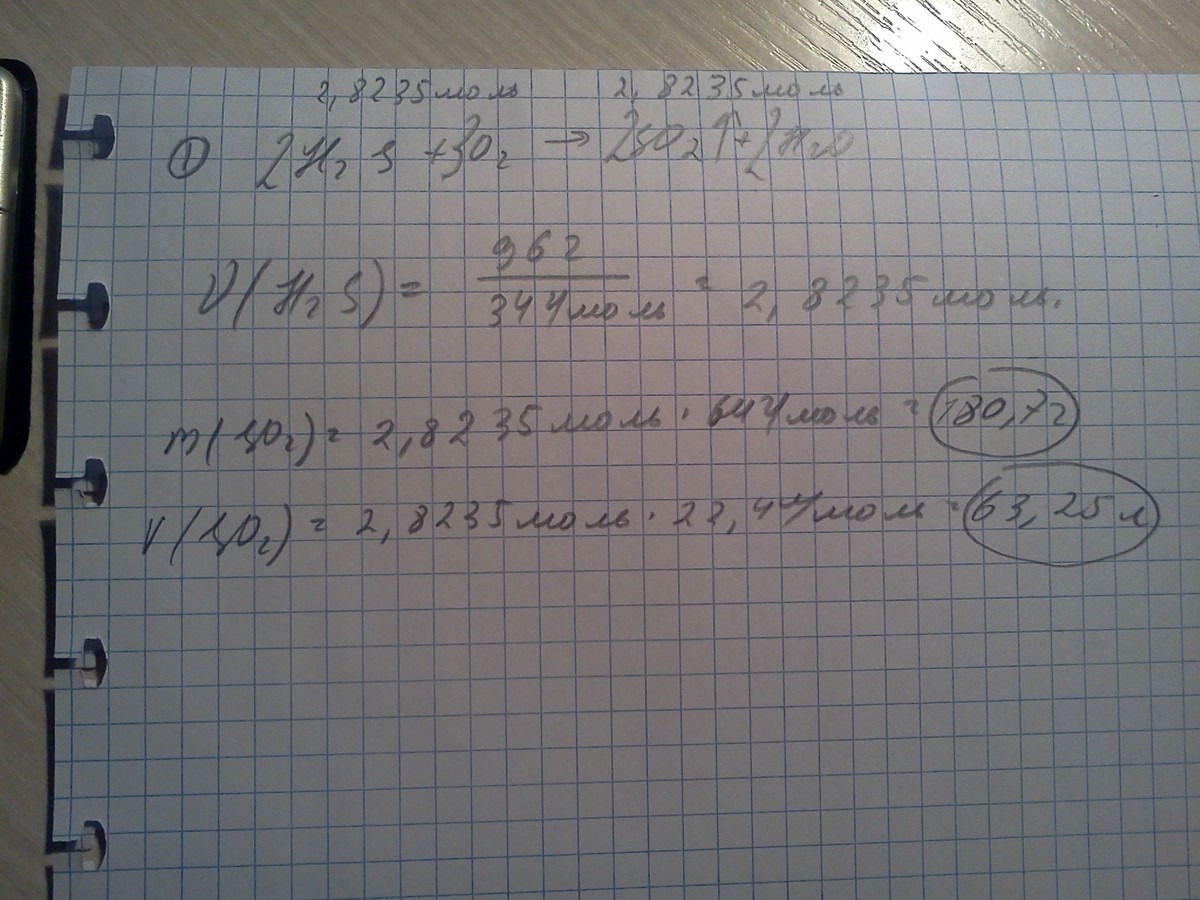 2,8235моль 2,8235моль
① 2H₂S + 3O₂ → 2SO₂↑ + 2H₂O
ν(H₂S) = 96г / 34г/моль = 2,8235моль.
m(SO₂) = 2,8235моль · 64г/моль = 180,7г
V(SO₂) = 2,8235моль · 22,4л/моль = 63,25л